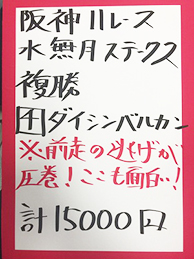 阪神11レース
水無月ステークス
複勝
田ダイシンバルカン
※前走の逃げが
圧巻！ここも面白い！
計15000円